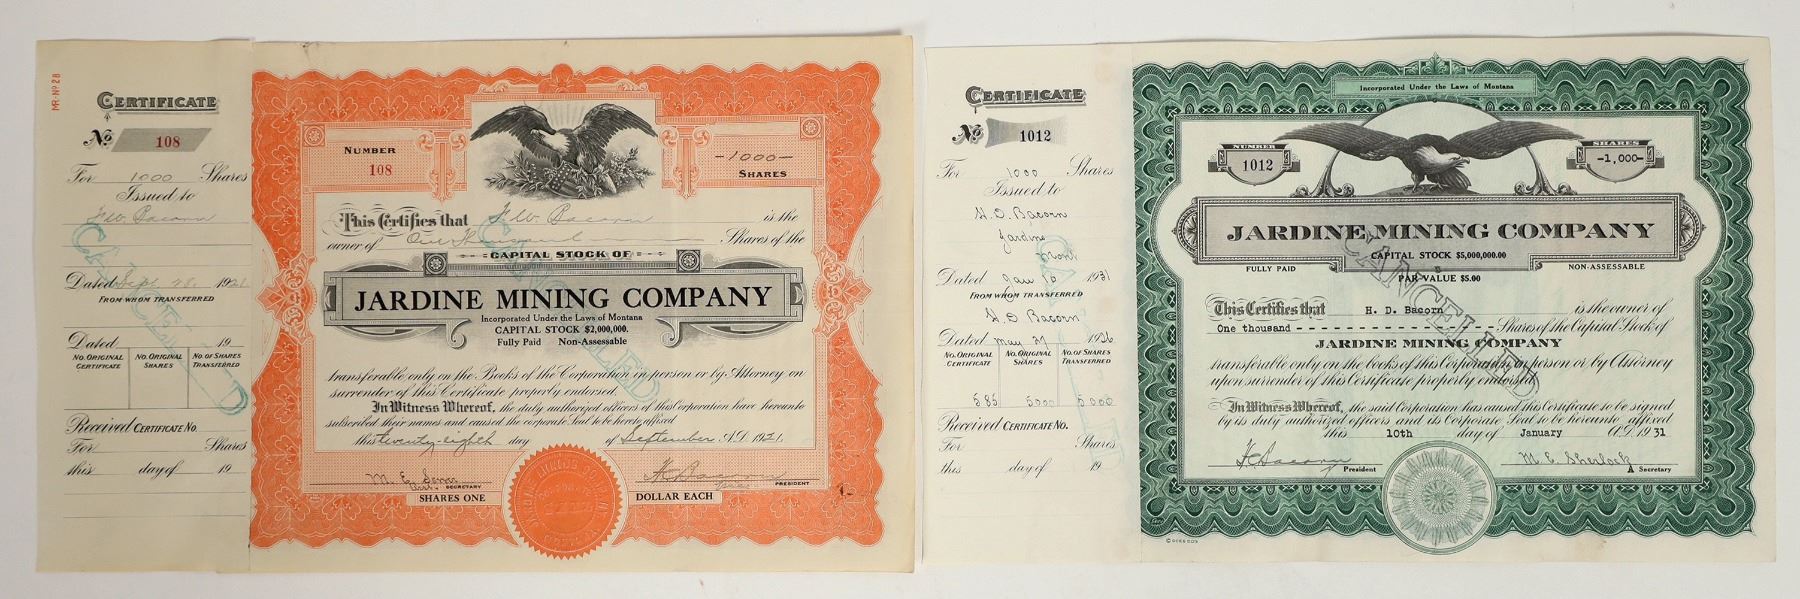 MR. No. 28
CERTIFICATE
No 108
For 1000 Shares
Issued to
F W. Bacorn
Dated Sept 28. 1921
FROM WHOM TRANSFERRED
Dated 19
NO. ORIGINAL CERTIFICATE NO. ORIGINAL SHARES NO. OF SHARES TRANSFERRED
Received CERTIFICATE NO.
For Shares
this day of 19
CANCELLED
NUMBER
108
-1000-
SHARES
This Certifies that F W. Bacorn is the
owner of One Thousand Shares of the
CAPITAL STOCK OF
JARDINE MINING COMPANY
Incorporated Under the Laws of Montana
CAPITAL STOCK $2,000,000.
Fully Paid Non-Assessable
transferable only on the Books of the Corporation in person or by Attorney on
surrender of this Certificate properly endorsed.
In Witness Whereof, the duly authorized officers of this Corporation have hereunto
subscribed their names and caused the corporate Seal to be hereto affixed
this twenty-eighth day of September A.D. 1921
SECRETARY
PRESIDENT
SHARES ONE DOLLAR EACH
CANCELLED
CERTIFICATE
No 1012
For 1000 Shares
Issued to
H. D. Bacorn
Jardine
Mont
Dated Jan 10 1931
FROM WHOM TRANSFERRED
H. D Bacorn
Dated May 27 1926
NO. ORIGINAL CERTIFICATE NO. ORIGINAL SHARES NO. OF SHARES TRANSFERRED
585 5000 5000
Received CERTIFICATE NO.
For Shares
this day of 19
Incorporated Under the Laws of Montana
NUMBER
1012
SHARES
-1,000-
JARDINE MINING COMPANY
CAPITAL STOCK $5,000,000.00
FULLY PAID NON-ASSESSABLE
PAR VALUE $5.00
This Certifies that H. D. Bacorn is the owner of
One thousand Shares of the Capital Stock of
JARDINE MINING COMPANY
transferable only on the books of this Corporation in person or by Attorney
upon surrender of this Certificate properly endorsed.
In Witness Whereof, the said Corporation has caused this Certificate to be signed
by its duly authorized officers and its Corporate Seal to be hereunto affixed
this 10th day of January A.D. 1931
President
M. E. Sherlock
A Secretary
CANCELLED
© GOES 209